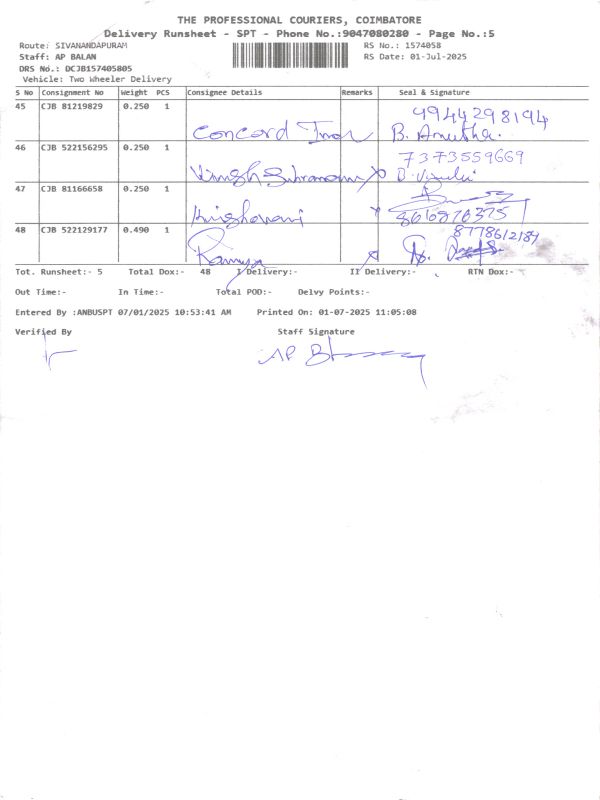 THE PROFESSIONAL COURIERS, COIMBATORE
Delivery Runsheet - SPT - Phone No.:9047080280 - Page No.:5
Route: SIVANANDAPURAM RS No.: 1574058
Staff: AP BALAN RS Date: 01-Jul-2025
DRS No.: DCJB157405805
Vehicle: Two Wheeler Delivery
S No Consignment No Weight PCS Consignee Details Remarks Seal & Signature
45 CJB 81219829 0.250 1 9944298194
Concord B. Anutha.
46 CJB 522156295 0.250 1 7373559669
47 CJB 81166658 0.250 1
48 CJB 522129177 0.490 1 8778612184
Ramya
Tot. Runsheet:- 5 Total Dox:- 48 I Delivery:- II Delivery:- RTN Dox:-
Out Time:- In Time:- Total POD:- Delvy Points:-
Entered By :ANBUSPT 07/01/2025 10:53:41 AM Printed On: 01-07-2025 11:05:08
Verified By Staff Signature
AP